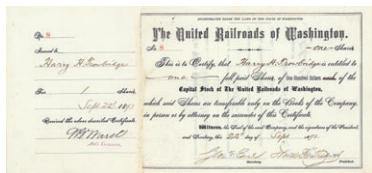 No. 8
Issued to
Harry H. Trowbridge
For 1 Share
Sept 22d 1891
Received the above described Certificate
INCORPORATED UNDER THE LAWS OF THE STATE OF WASHINGTON.
The United Railroads of Washington.
No 8
one Share
This is to Certify, that Harry H. Trowbridge is entitled to
one full paid Share, of One Hundred Dollars each, of the
Capital Stock of The United Railroads of Washington,
which said Shares are transferable only on the Books of the Company,
in person or by attorney on the surrender of this Certificate.
Witness, the Seal of the said Company, and the signatures of the President
and Secretary, this 22d day of Sept 1891.
Secretary.
President.